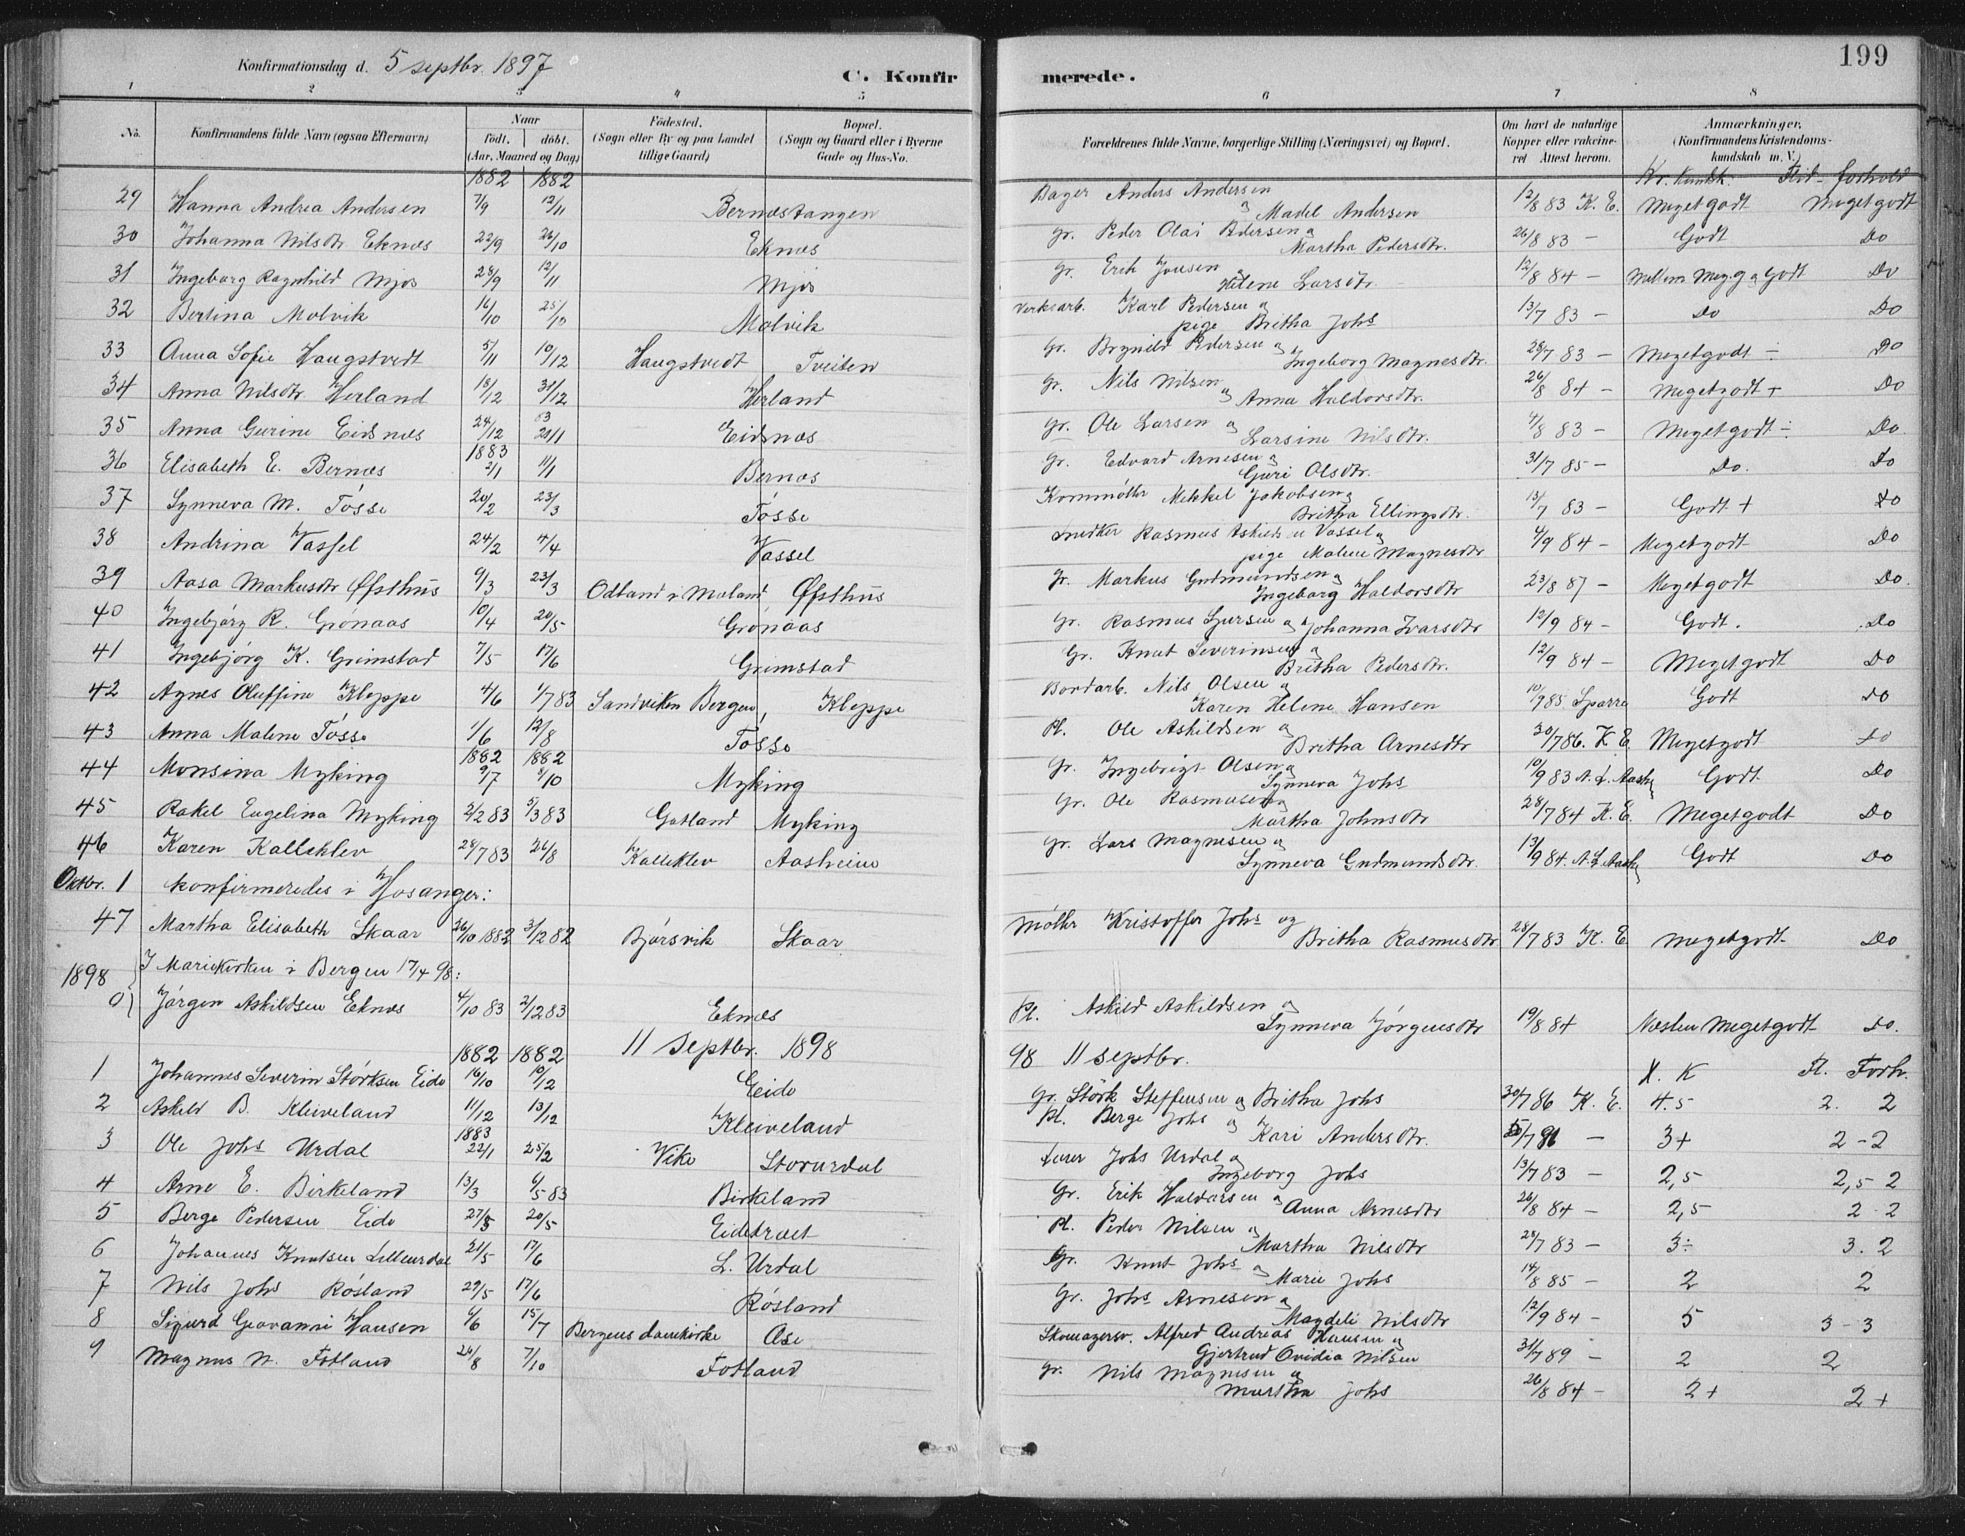 Konfirmationsdag d. 5 septbr. 1897
C. Konfirmerede.
199
1 2 3 4 5 6 7 8
No. Konfirmandens fulde Navn (ogsaa Efternavn) Naar født, døbt. (Aar, Maaned og Dag) Fødested. (Sogn eller By og paa Landet tillige Gaard) Bopæl. (Sogn og Gaard eller i Byerne Gade og Hus-No. Forældrenes fulde Navne, borgerlige Stilling (Næringsvei) og Bopæl. Om havt de naturlige Kopper eller vakcineret Attest herom. Anmærkninger, (Konfirmandens Kristendomskundskab m. V.)
1882 1882 Kr. Kundsk. Flid- forhold
29 Hanna Andrea Andersen 7/9 12/11 Bernestangen Bager Anders Andersen og Madel Andersen 12/8 83 K. E. Megetgodt Megetgodt
30 Johanna Nilsdtr Eknes 22/9 26/10 Eknes Gr. Peder Olai Pedersen og Martha Pedersdtr. 26/8 83 — Godt Do
31 Ingeborg Ragnhild Mjøs 28/9 12/11 Mjøs Gr. Erik Jonsen og Helene Larsdtr 12/8 84 — Mellem Meg. g og Godt Do
32 Bertina Molvik 16/10 25/10 Molvik Verksarb. Karl Pedersen og pige Britha Johs 13/7 83 — Do Do
33 Anna Sofie Haugstvedt 5/11 10/12 Haugstvedt Tveiten Gr. Brynild Pedersen og Ingeborg Magnesdtr. 28/7 83 — Megetgodt ÷ Do
34 Anna Nilsdtr Herland 18/12 31/12 Herland Gr. Nils Nilsen og Anna Haldorsdtr. 26/8 84 — Megetgodt + Do
35 Anna Gurine Eidsnes 24/12 83 20/1 Eidsnes Gr. Ole Larsen og Larsine Nilsdtr. 4/8 83 — Megetgodt ÷ Do
1883
36 Elisabeth E. Bernes 2/1 11/1 Bernes Gr. Edvard Arnesen og Guri Olsdtr. 31/7 85 — Do. Do
37 Synneva M. Tøsse 20/2 23/3 Tøsse Kornmøller Mikkel Jakobsen og Britha Ellingsdtr. 13/7 83 — Godt + Do
38 Andrina Vassel 24/2 4/4 Vassel Snedker Rasmus Askilds. u Vassel og pige Malene Magnesdtr 4/9 84 — Megetgodt Do
39 Aasa Markusdtr Øfsthus 9/3 23/3 Odland i Moland Øfsthus Gr. Markus Gudmundsen og Ingeborg Haldorsdtr 23/8 87 — Megetgodt Do.
40 Ingebjørg R. Grønaas 10/4 20/5 Grønaas Gr. Rasmus Sjursen og Johanna Ivarsdtr 12/9 84 — Godt. Do
41 Ingebjørg K. Grimstad 7/5 17/6 Grimstad Gr. Knut Severinsen og Britha Pedersdtr. 12/9 84 — Megetgodt Do
42 Agnes Oluffine Kleppe 4/6 1/7 83 Sandviken Bergen, Kleppe Bordarb. Nils Olsen og Karen Helene Hansen 10/9 85 Sparre Godt Do
43 Anna Malene Tøsse 1/6 12/8 Tøsse Pl. Ole Askildsen og Britha Arnesdtr 30/7 86. K E. Megetgodt Do
1882 1882
44 Monsina Myking 9/7 8/10 Myking Gr. Ingebrigt Olsen og Synneva Johs 10/9 83 N. L. Aash. Godt Do
45 Rakel Engelina Myking 2/2 83 5/3 83 Gotland Myking Gr. Ole Rasmusen og Martha Johnsdtr 28/7 84 K. E. Megetgodt Do
46 Karen Kalleklev 28/7 83 26/8 Kalleklev Aasheim Gr. Lars Magnesen og Synneva Gudmundsdtr. 13/9 84. N. L. Aash. Godt Do
Oktbr. 1 konfirmeredes i Hosanger:
47 Martha Elisabeth Skaar 26/10 1882 3/12 82 Bjørsvik Skaar Møller Kristoffer Johs og Britha Rasmusdtr 28/7 83 K. E. Megetgodt Do
1898 I Mariekirken i Bergen 17/4 98:
0 Jørgen Askildsen Eknes 4/10 83 2/12 83 Eknes Pl. Askild Askildsen og Synneva Jørgensdtr 19/8 84 Næsten Megetgodt Do.
1882 1882 11 Septbr. 1898 98 11 septbr. X. K Fl. Forh.
1 Johannes Severin Størksen Eide 16/10 10/12 Eide Gr. Størk Steffensen og Britha Johs 30/7 86 K. E. 4.5 2. 2
2 Askild B. Kleiveland 11/12 13/12 Kleiveland Pl. Berge Johs og Kari Andersdtr. /7 91 — 3+ 2-2
1883
3 Ole Johs Urdal 22/1 25/2 Vike Storurdal Lærer Johs Urdal og Ingeborg Johs 13/7 83 — 2,5 2,5 2
4 Arne E. Birkeland 13/3 6/5 83 Birkeland Gr. Erik Haldorsen og Anna Arnesdtr 26/8 84 — 2,5 2 2
5 Berge Pedersen Eide 27/3 20/5 Eidetræet Pl. Peder Nilsen og Martha Nilsdtr 28/7 83 — 3÷ 3. 2
6 Johannes Knutsen Lilleurdal 21/5 17/6 L. Urdal Gr. Knut Johs og Marie Johs 14/8 85 — 2 2
7 Nils Johs Røsland 29/5 17/6 Røsland Gr. Johs Arnesen og Magdeli Nilsdtr 12/9 84 — 5 3-3
8 Sigurd Geovanni Hansen 6/6 15/7 Bergens Domkirke Ose Skomagersv. Alfred Andreas Hansen og Gjertrud Ovidia Nilsen 31/7 89 — 2 2
9 Magnus N. Fotland 26/8 7/10 Fotland Gr. Nils Magnesen og Martha Johs 26/8 84 — 2+ 2+